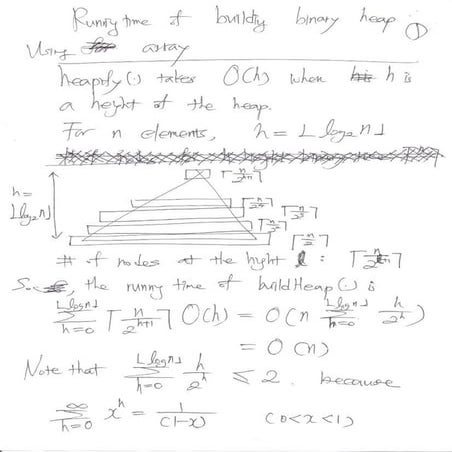 Running time of building binary heap ①
Using array
heapify(·) takes O(h) when h is
a height of the heap.
For n elements, h = ⌊log₂n⌋
h = ⌊log₂n⌋
⌈n/2^{h+1}⌉
⌈n/2⌉
# of nodes at the hight : ⌈n/2⌉
So, the runny time of buildHeap(·) is
∑_{h=0}^{⌊log n⌋} ⌈n/2^{h+1}⌉ O(h) = O(n ∑_{h=0}^{⌊log n⌋} h/2^h)
= O(n)
Note that ∑_{h=0}^{⌊log n⌋} h/2^h ≤ 2. because
∑_{h=0}^{∞} x^h = 1/(1-x) (0<x<1)